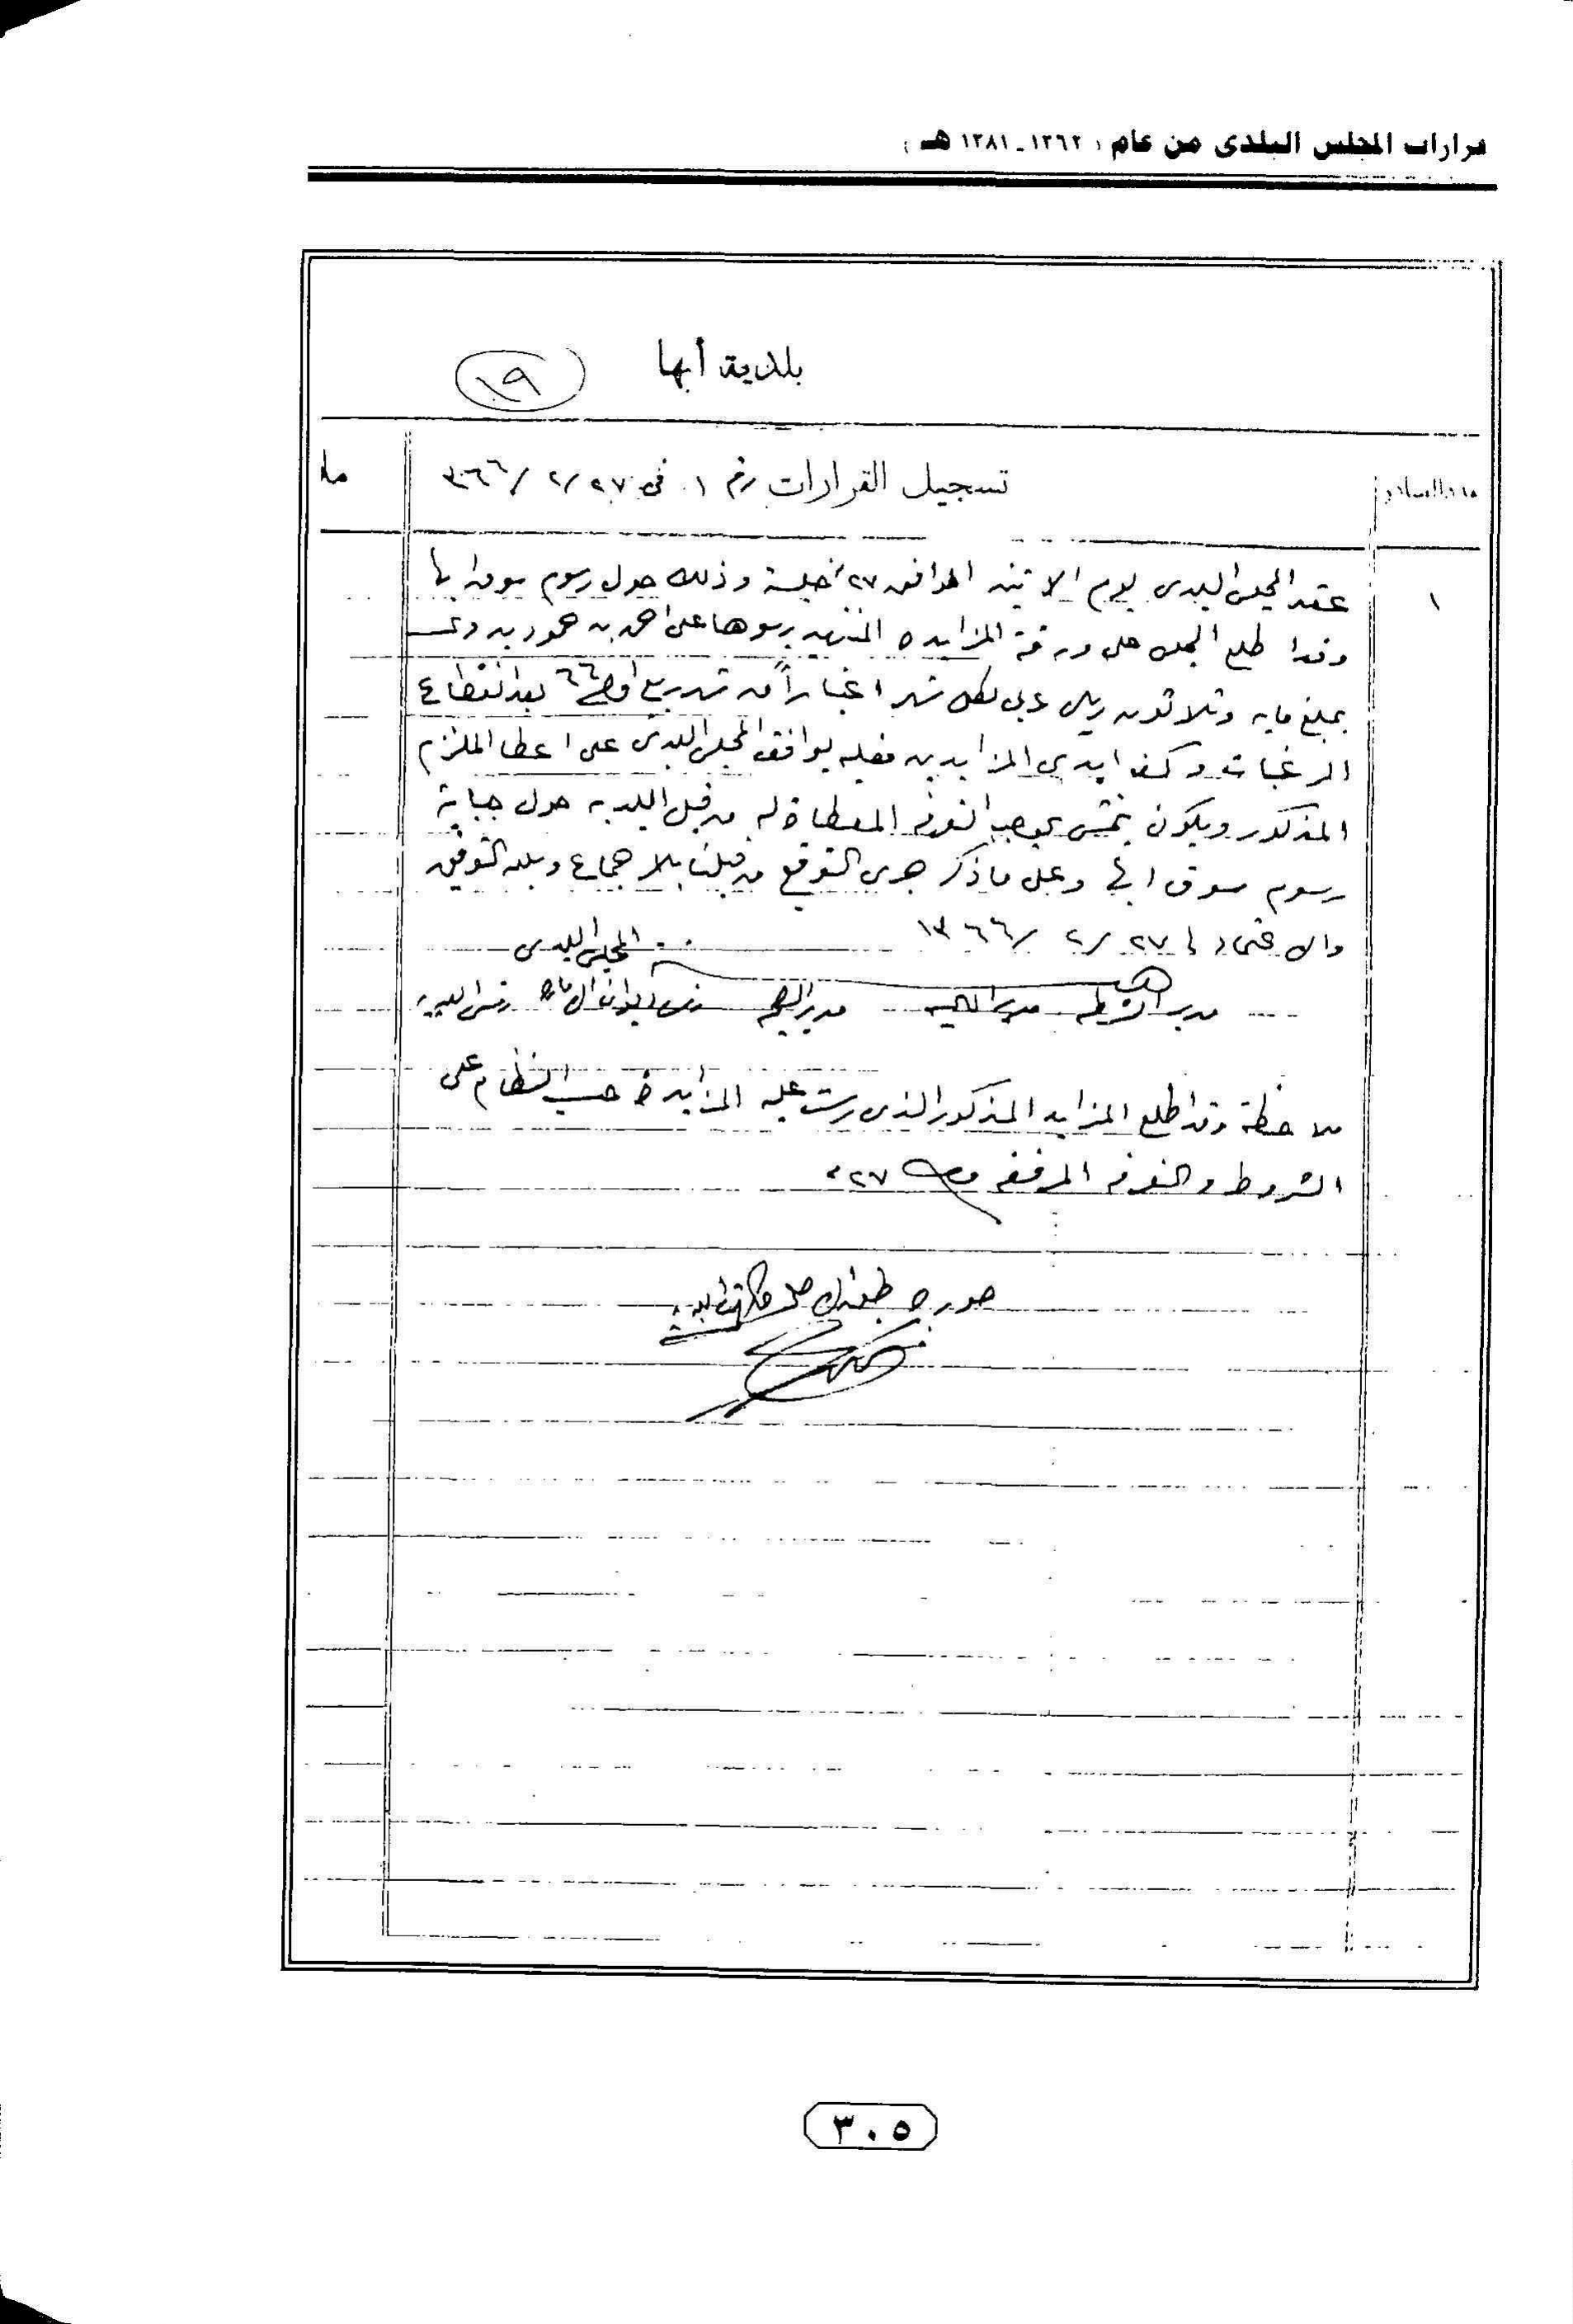 قرارات المجلس البلدى من عام ( ١٣٦٢ - ١٣٨١ هـ )
بلدية أبها
١٩
عدد الصادر
تسجيل القرارات رقم ١ فى ٢٧/ ٢/ ١٣٦٦
ملا
١
عقد المجلس البلدى يوم الاثنين الموافق ٢٧ جلسة وذلك حول رسوم سوق ابها
وقد اطلع المجلس على ورقة المزايده المنتهيه برسوها على احمد بن حمود بن
بمبلغ مايه وثلاثون ريال عربى لكل شهر اعتباراً من شهر ربيع اول ٦٦ بعد انقطاع
الرغبات وكف ايدى المزايدين فعليه يوافق المجلس البلدى على اعطا الملتزم
المذكور ويكون يتمشى بموجب التعرفه المعطاة له من قبل البلديه حول جباية
رسوم سوق ابها وعلى ما ذكر جرى التوقيع من قبلنا بالاجماع وبالله التوفيق
والاعتماد ٢٧/ ٢/ ١٣٦٦
المجلس البلدى
هيئـــة
مدير الشرطه مدير الماليه مدير الصحه رئيس ديوان الاماره رئيس البلديه
ملاحظة وقد اطلع المزايد المذكور الذى رست عليه المزايدة حسب النظام على
الشروط والتعرفه المرفقه ٢٧
صوره طبق الاصل كاتب البلدية
٣٠٥